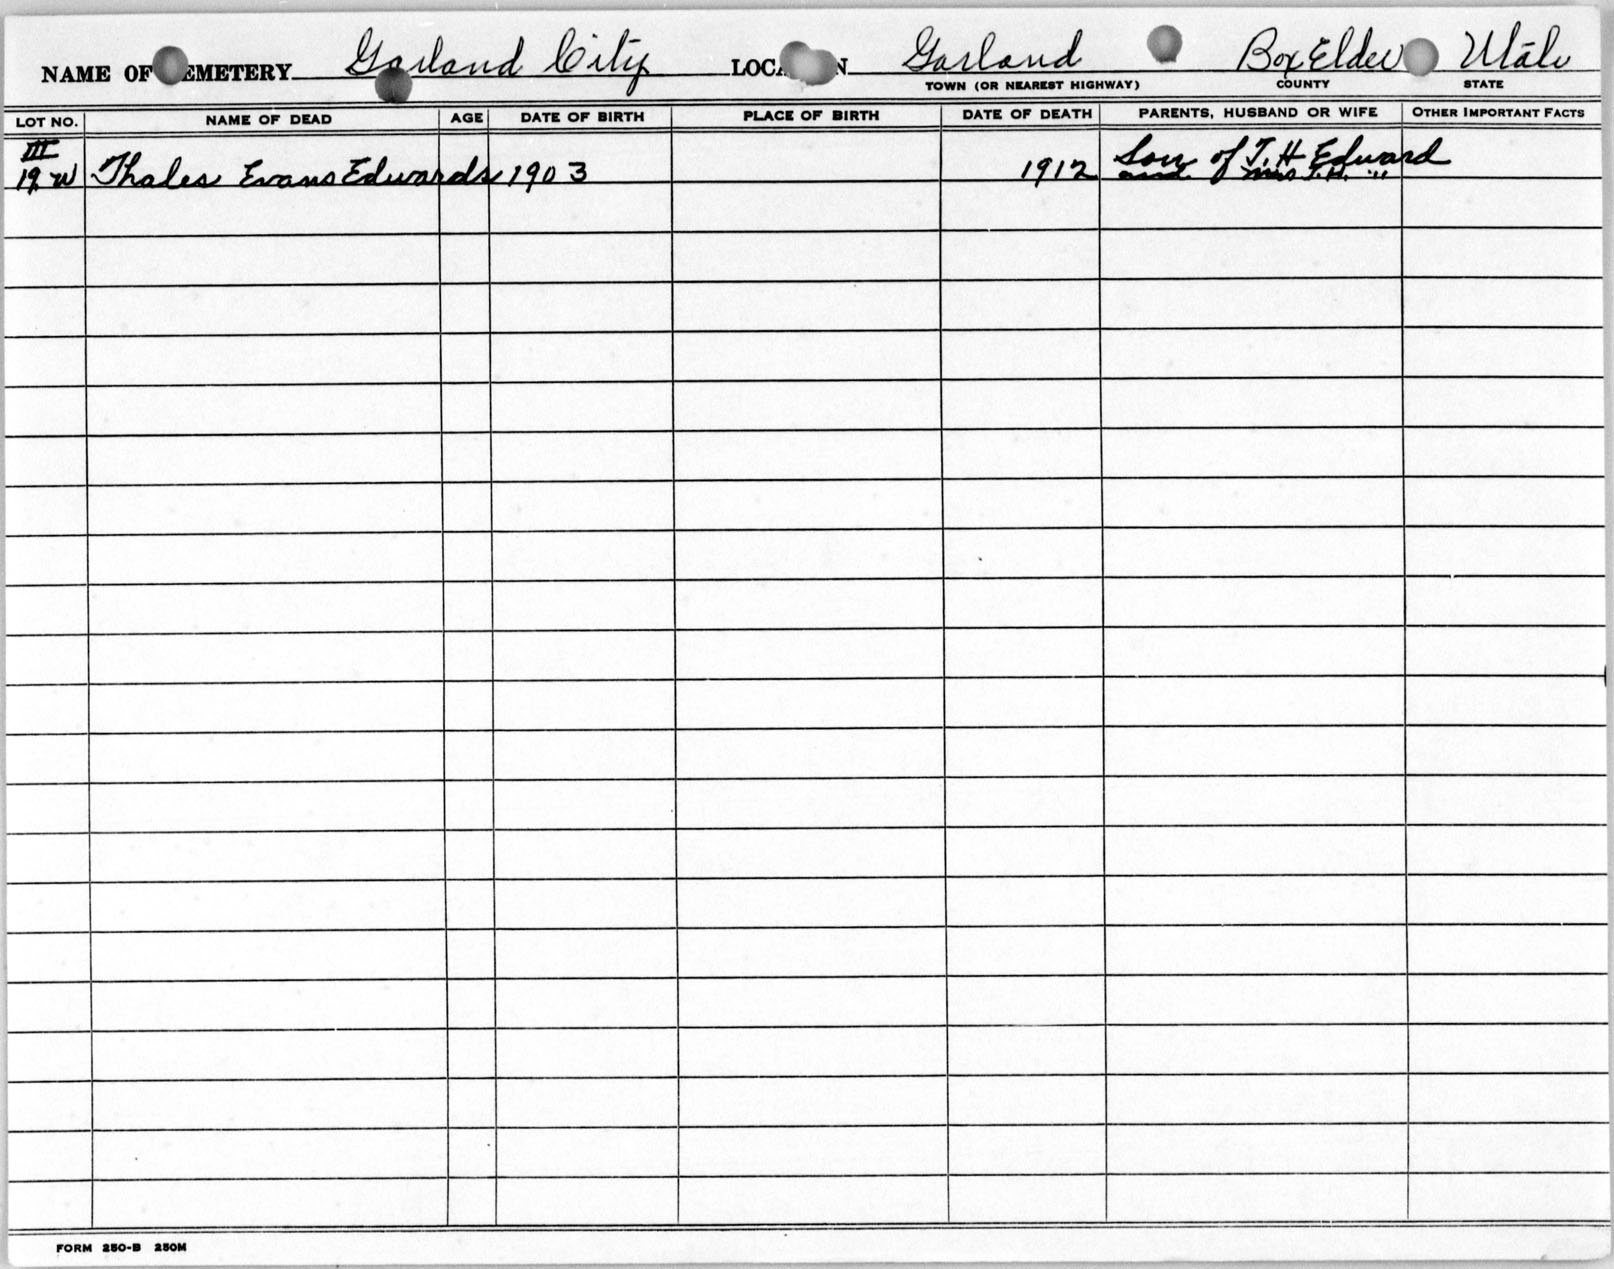 NAME OF CEMETERY Garland City LOCATION Garland Box Elder Utah
TOWN (OR NEAREST HIGHWAY) COUNTY STATE
LOT NO. NAME OF DEAD AGE DATE OF BIRTH PLACE OF BIRTH DATE OF DEATH PARENTS, HUSBAND OR WIFE OTHER IMPORTANT FACTS
III Son of T. H Edward
19 W Thales Evans Edwards 1903 1912 and Mrs T. H. "
FORM 250-B 250M